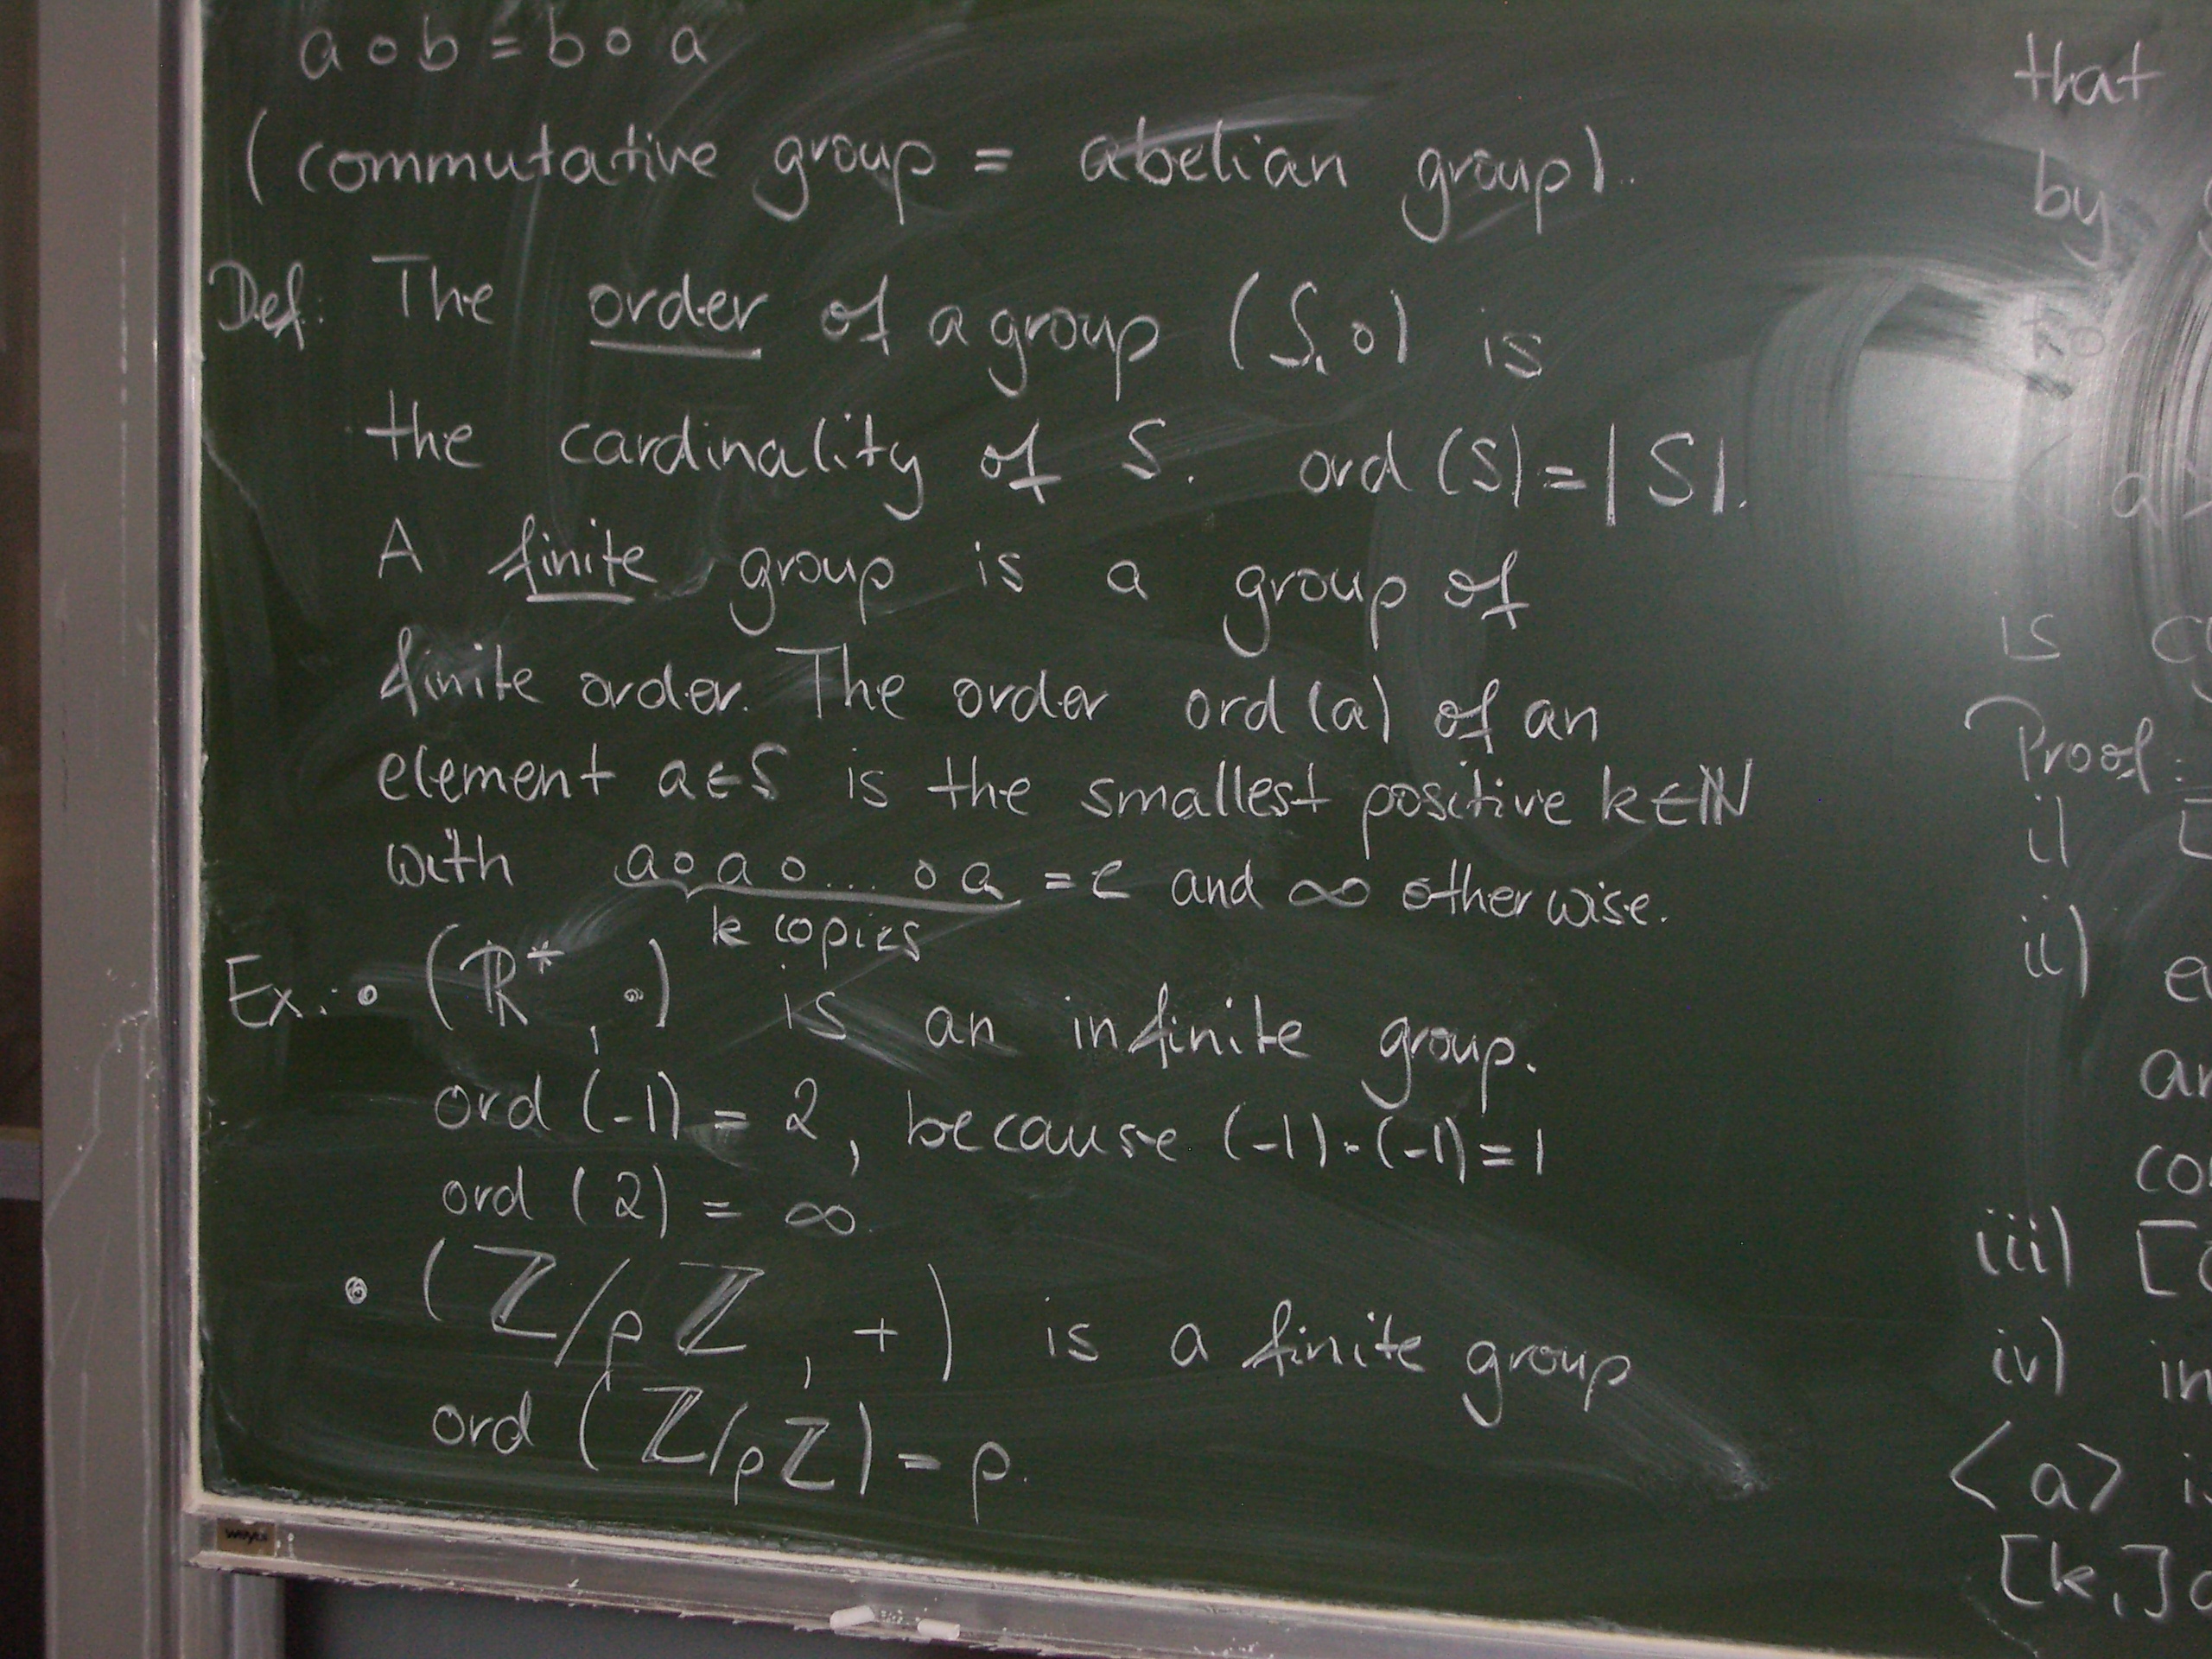 a∘b = b∘a
(commutative group = abelian group).
Def: The order of a group (S,∘) is
the cardinality of S. ord(S) = |S|.
A finite group is a group of
finite order. The order ord(a) of an
element a∈S is the smallest positive k∈ℕ
with a∘a∘...∘a = e and ∞ otherwise.
k copies
Ex.: • (ℝ*, ·) is an infinite group.
ord(-1) = 2, because (-1)·(-1)=1
ord(2) = ∞.
• (ℤ/pℤ, +) is a finite group
ord(ℤ/pℤ) = p.
that
by
to
<a>
is
Proof:
i) [
ii)
iii) [
iv)
<a>
[k,]